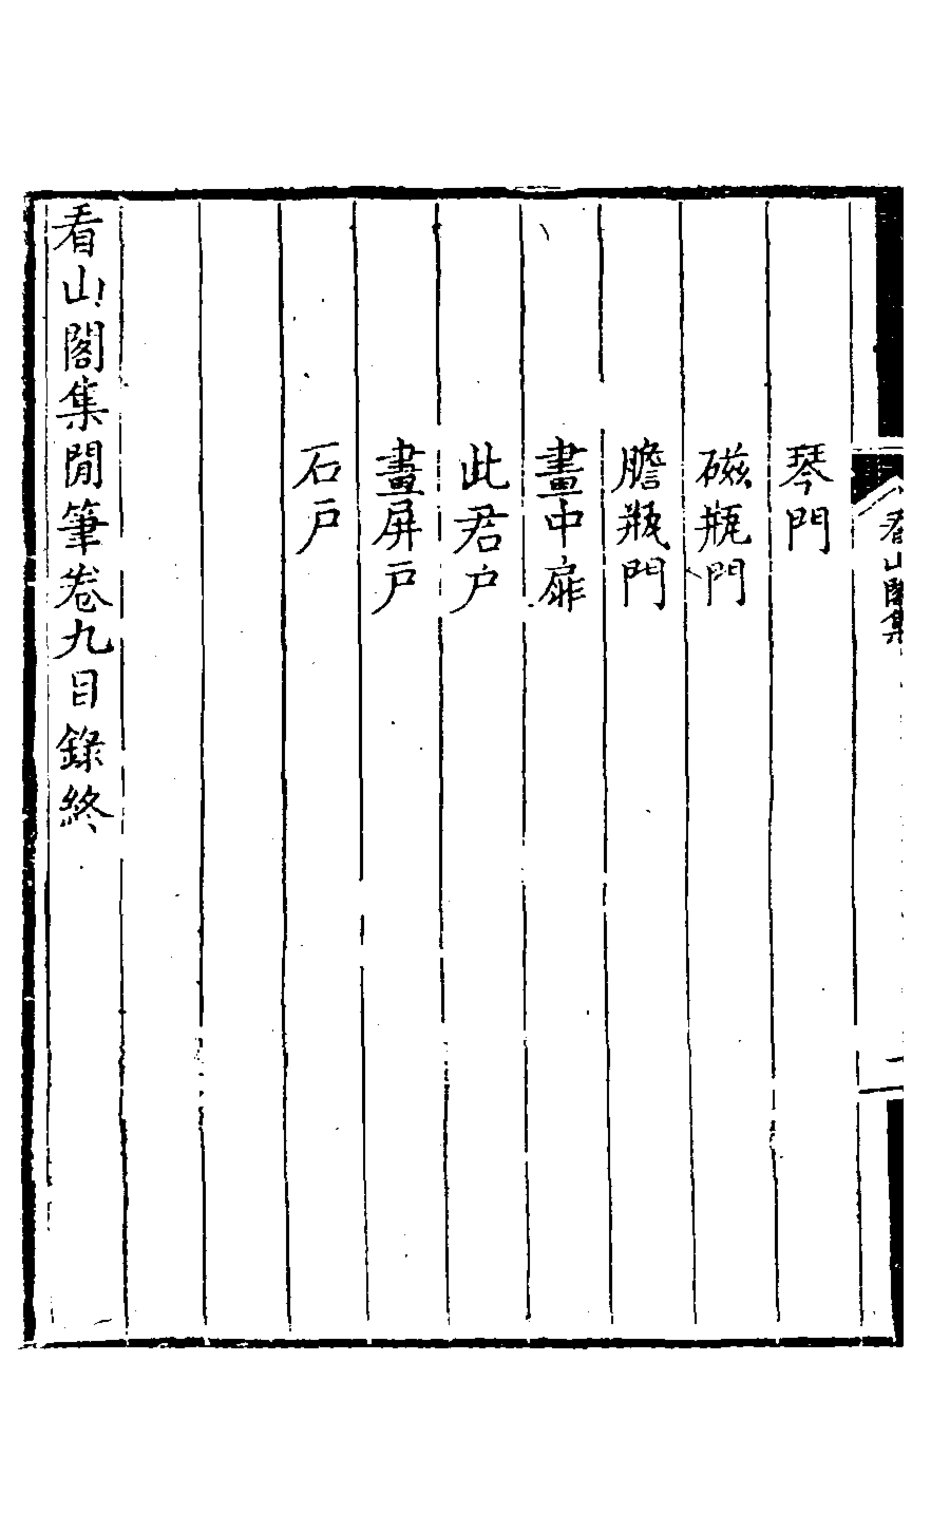 看山閣集
一
琴門
磁瓶門
膽瓶門
畫中扉
此君户
畫屏戸
石戸
看山閣集閒筆卷九目錄終